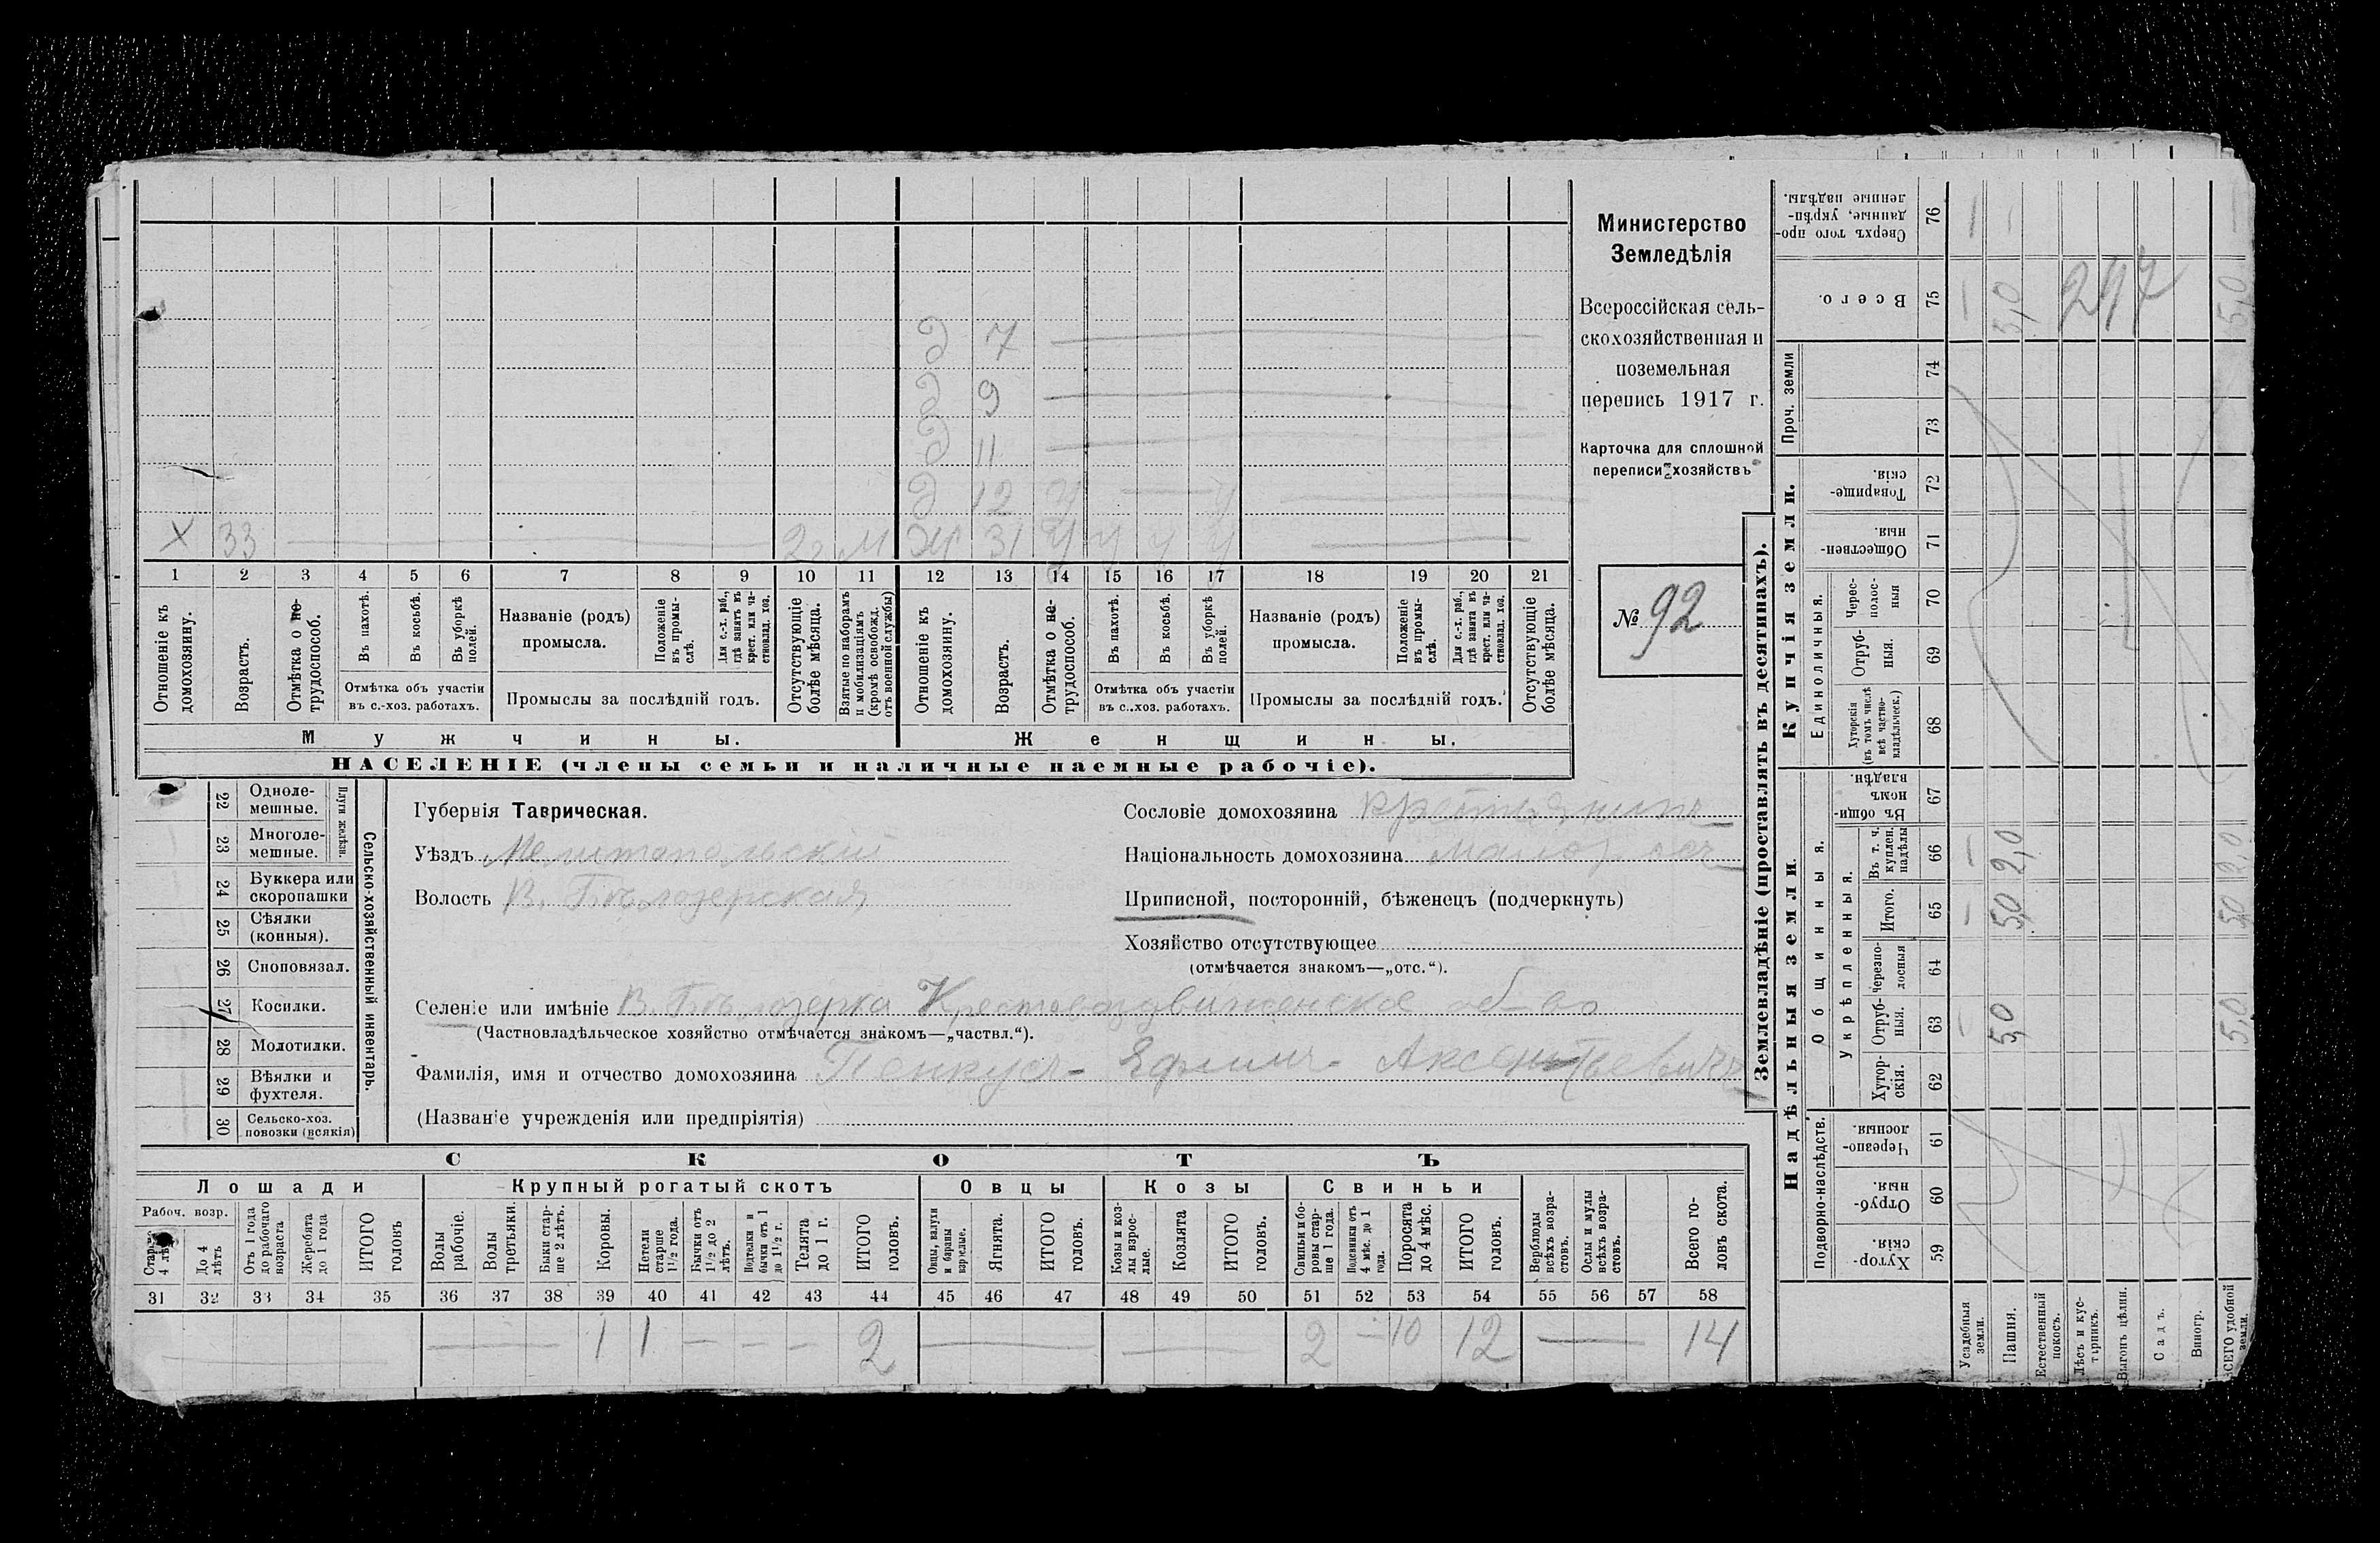 Министерство
Земледѣлія
Всероссійская сель-
скохозяйственная и
поземельная
перепись 1917 г.
Карточка для сплошной
переписи хозяйствъ
№ 92
Д 7
Д 9
Д 11
Д 12 У — У
Х 33 2 г М Ж 31 У У У У
1 2 3 4 5 6 7 8 9 10 11 12 13 14 15 16 17 18 19 20 21
Отношеніе къ домохозяину.
Возрастъ.
Отмѣтка о не-трудоспособ.
Въ пахотѣ.
Въ косьбѣ.
Въ уборкѣ полей.
Отмѣтка объ участіи
въ с.-хоз. работахъ.
Названіе (родъ)
промысла.
Положеніе въ промы-слѣ.
Для с.-х. раб., гдѣ занятъ въ крест. или ча-стновлад. хоз.
Промыслы за послѣдній годъ.
Отсутствующіе болѣе мѣсяца.
Взятые по наборамъ и мобилизаціямъ (кромѣ освобожд. отъ военной службы)
Отношеніе къ домохозяину.
Возрастъ.
Отмѣтка о не-трудоспособ.
Въ пахотѣ.
Въ косьбѣ.
Въ уборкѣ полей.
Отмѣтка объ участіи
въ с.-хоз. работахъ.
Названіе (родъ)
промысла.
Положеніе въ промы-слѣ.
Для с.-х. раб., гдѣ занята въ крест. или ча-стновлад. хоз.
Промыслы за послѣдній годъ.
Отсутствующіе болѣе мѣсяца.
Мужчины.
Женщины.
НАСЕЛЕНІЕ (члены семьи и наличные наемные рабочіе).
22 Одноле-мешные.
23 Многоле-мешные.
Плуги желѣзн.
24 Буккера или скоропашки
25 Сѣялки (конныя).
26 Споповязал.
27 Косилки.
28 Молотилки.
29 Вѣялки и фухтеля.
30 Сельско-хоз. повозки (всякія)
Сельско-хозяйственный инвентарь.
Губернія Таврическая.
Уѣздъ Мелитопольскій
Волость В. Бѣлозерская
Сословіе домохозяина крестьянинъ
Національность домохозяина
Приписной, посторонній, бѣженецъ (подчеркнуть)
Хозяйство отсутствующее
(отмѣчается знакомъ—„отс.“).
Селеніе или имѣніе В. Бѣлозерка Крестовоздвиженское об-во
(Частновладѣльческое хозяйство отмѣчается знакомъ—„частвл.“).
Фамилія, имя и отчество домохозяина Пенкусъ Ефимъ Аксентьевичъ
(Названіе учрежденія или предпріятія)
СКОТЪ
Лошади
Крупный рогатый скотъ
Овцы
Козы
Свиньи
Рабоч. возр.
4 лѣтъ
До 4 лѣтъ
Отъ 1 года до рабочаго возраста
Жеребята до 1 года
ИТОГО головъ
Волы рабочіе.
Волы третьяки.
Быки стар-ше 2 лѣтъ.
Коровы.
Нетели старше 1½ года.
Бычки отъ 1½ до 2 лѣтъ.
Подтелки и бычки отъ 1 до 1½ г.
Телята до 1 г.
ИТОГО головъ.
Овцы, валухи и бараны взрослые.
Ягнята.
ИТОГО головъ.
Козы и коз-лы взрос-лые.
Козлята
ИТОГО головъ.
Свиньи и бо-ровы стар-ше 1 года.
Подсвинки отъ 4 мѣс. до 1 года.
Поросята до 4 мѣс.
ИТОГО головъ.
Верблюды всѣхъ возра-стовъ.
Ослы и мулы всѣхъ возра-стовъ.
Всего го-ловъ скота.
31 32 33 34 35 36 37 38 39 40 41 42 43 44 45 46 47 48 49 50 51 52 53 54 55 56 57 58
— — 1 1 — — — 2 — — 2 — 10 12 — 14
Землевладѣніе (проставлять въ десятинахъ).
Надѣльныя земли.
Купчія земли.
Проч. земли
Подворно-наслѣдств.
Общинныя.
Укрѣпленныя.
Единоличныя.
Хутор-скія. 59
Отруб-ныя. 60
Черезпо-лосныя. 61
Хутор-скія. 62
Отруб-ныя. 63
Черезпо-лосныя 64
Итого. 65
Въ т. ч. куплен. надѣлы 66
Въ общи-номъ владѣн. 67
Хуторскія (въ томъ числѣ всѣ частно-владѣльческ.) 68
Отруб-ныя. 69
Черес-полос-ныя 70
Обществен-ныя. 71
Товарище-скія. 72
73
74
Всего. 75
Сверхъ того про-данные, укрѣп-ленные надѣлы. 76
Усадебныя земли.
Пашня. 5,0 5,0 2,0 5,0
Естественный покосъ.
Лѣсъ и кус-тарникъ.
Выгонъ цѣлин.
Садъ.
Виногр.
ВСЕГО удобной земли. 5,0 5,0 2,0 5,0